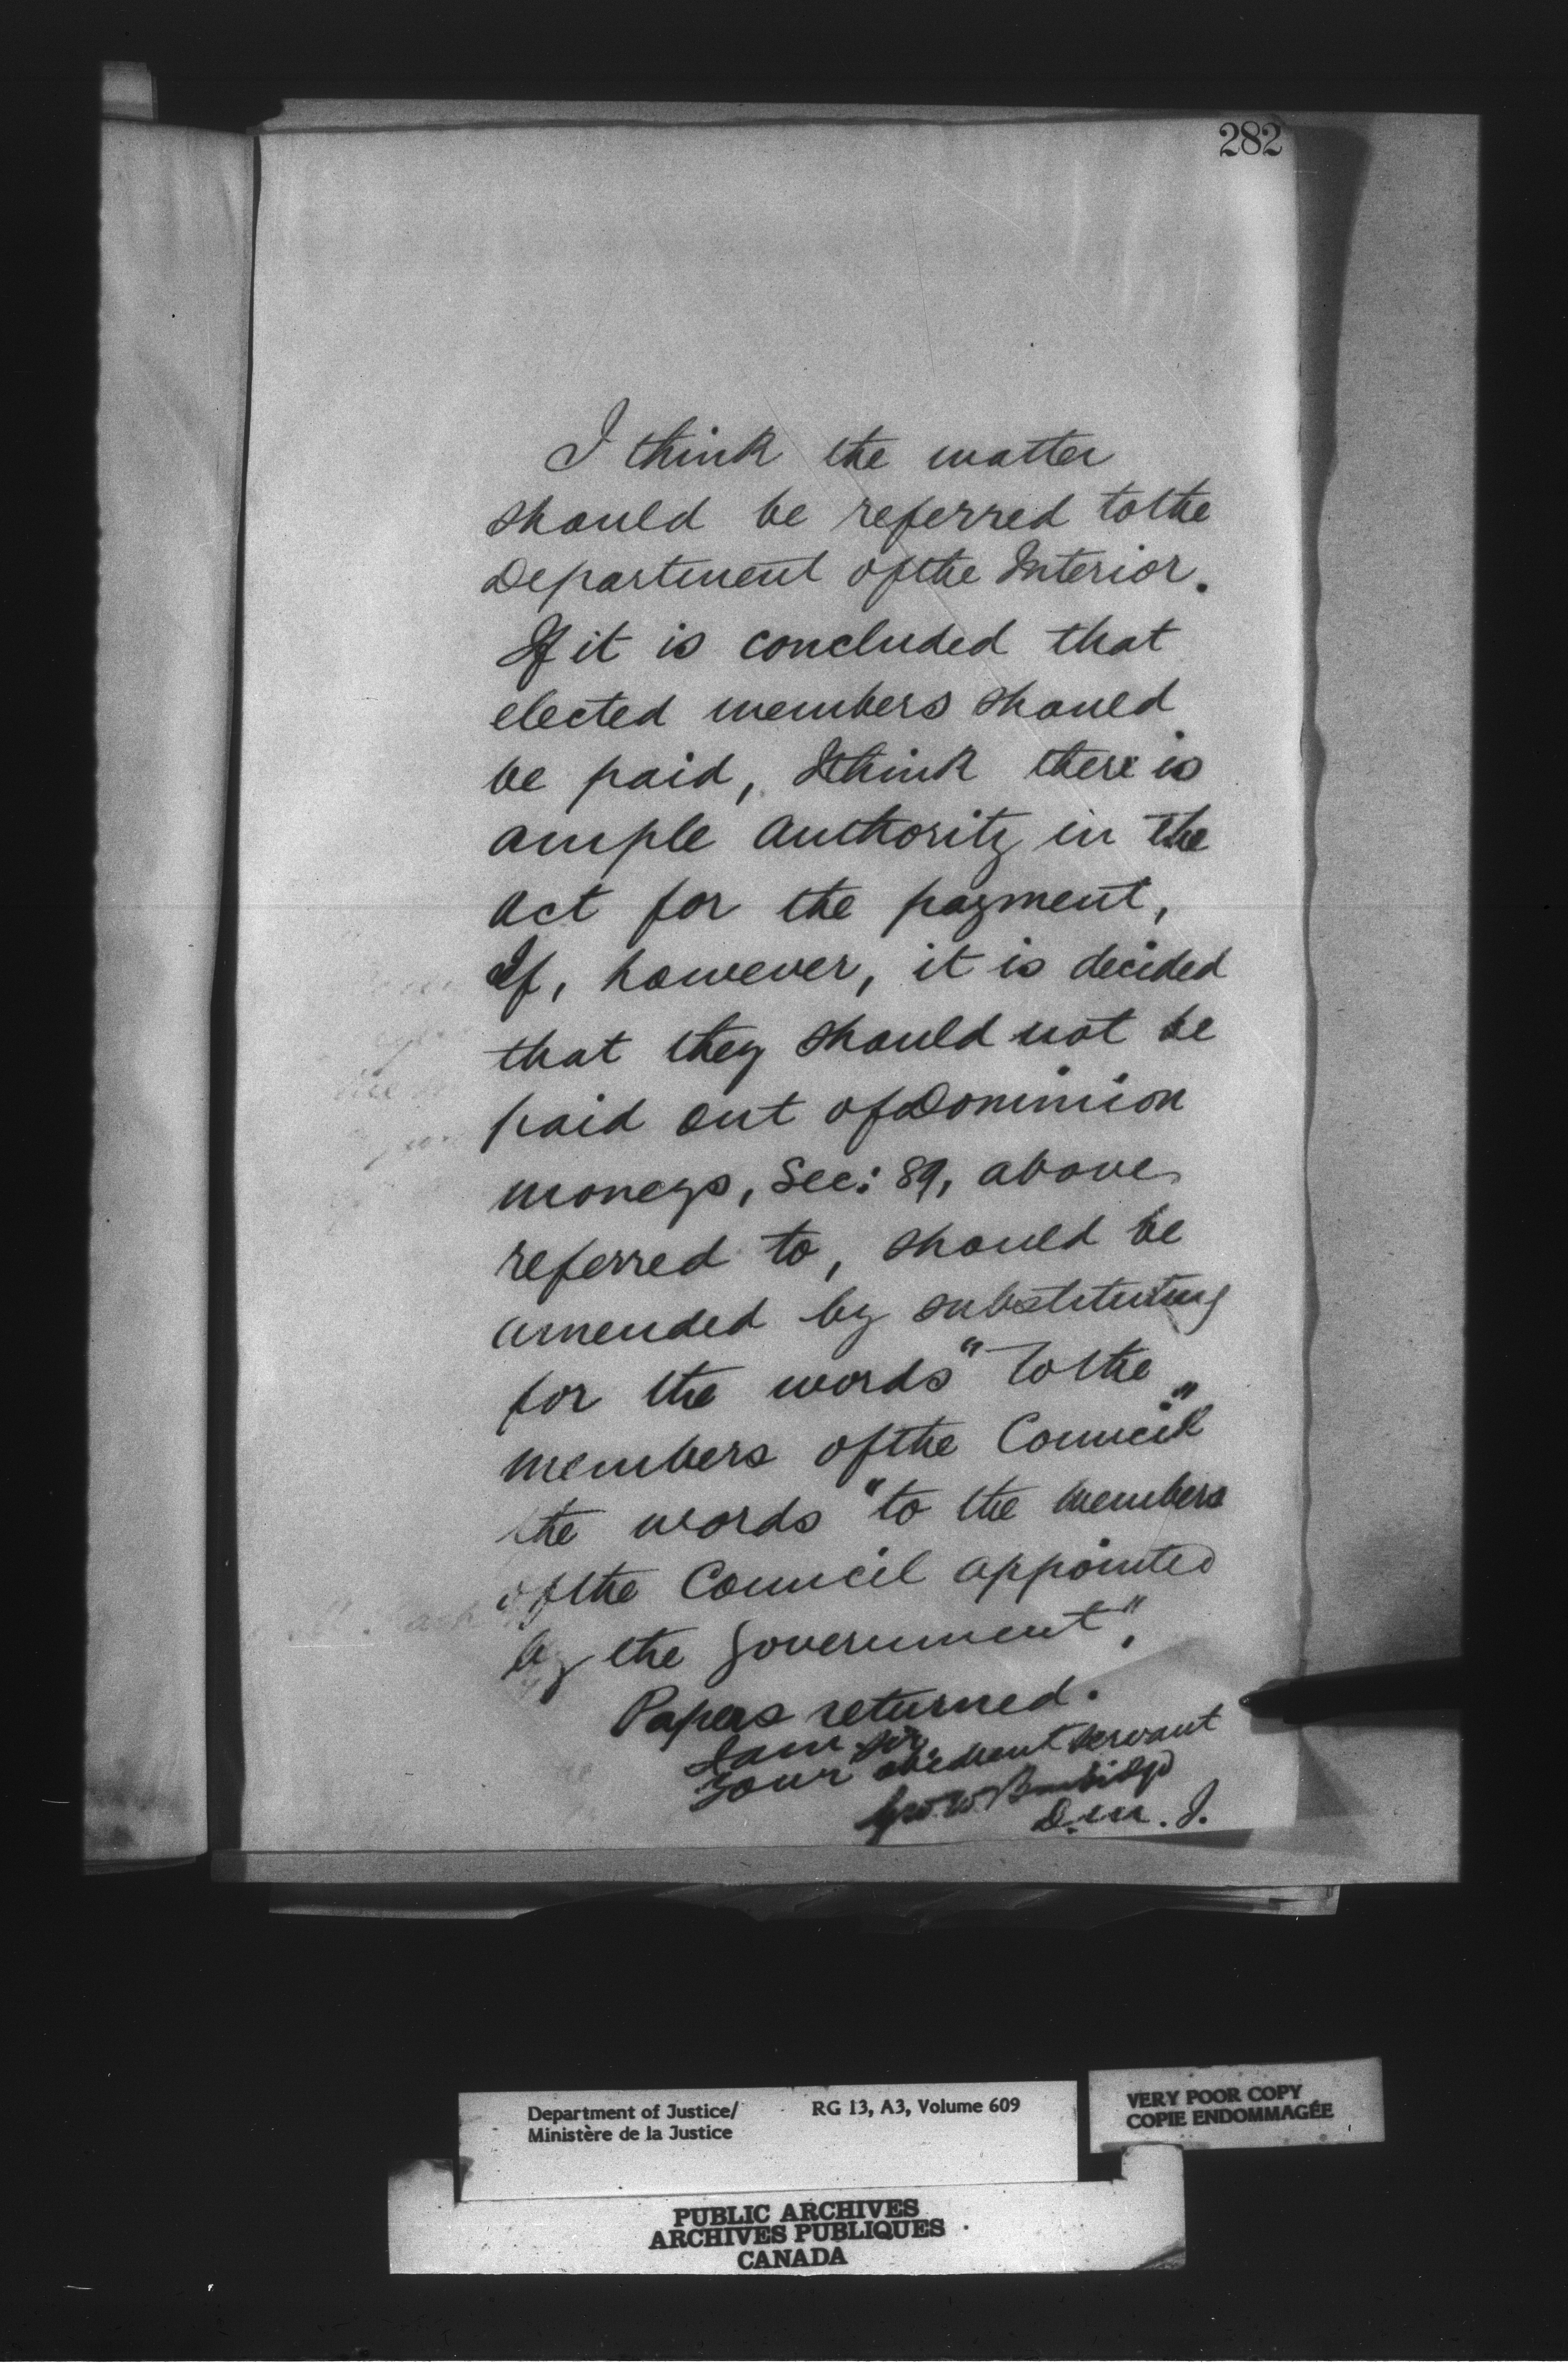 282
I think the matter
should be referred to the
Department of the Interior.
If it is concluded that
elected members should
be paid, I think there is
ample authority in the
act for the payment,
If, however, it is decided
that they should not be
paid out of Dominion
moneys, Sec: 89, above
referred to, should be
amended by substituting
for the words "to the
members of the Council"
the words "to the members
of the Council appointed
by the Government".
Papers returned.
I am Sir,
Your obedient servant
Geo. W. Burbidge
D. M. J.
Department of Justice/ RG 13, A3, Volume 609
Ministère de la Justice
VERY POOR COPY
COPIE ENDOMMAGÉE
PUBLIC ARCHIVES
ARCHIVES PUBLIQUES
CANADA